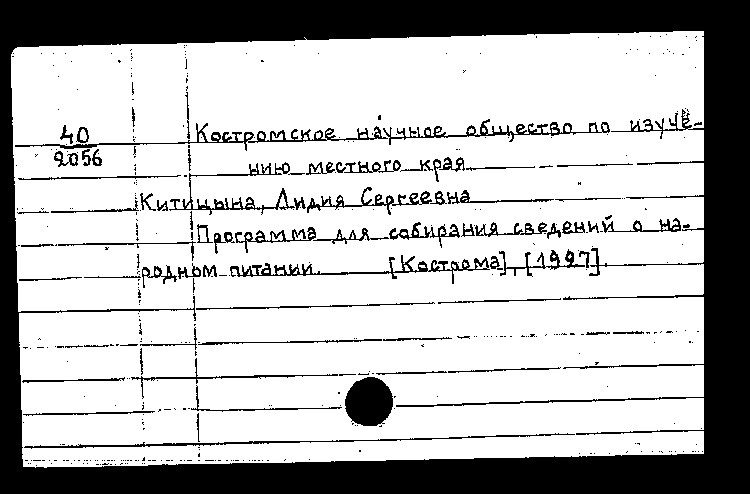 40
2056
Костромское научное общество по изуче-
нию местного края
Китицына, Лидия Сергеевна
Программа для собирания сведений о на-
родном питании. [Кострома], [1997].